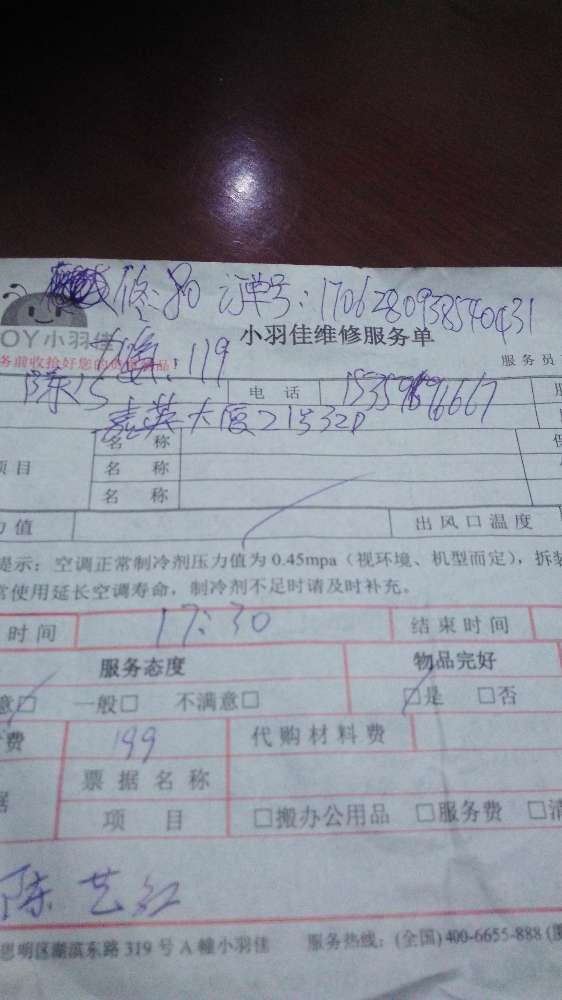 订单号：1706280938540431
OY小羽佳
小羽佳维修服务单
务前收拾好您的
119
服务员
陈
电话
大厦21号32D
名称
项目
名称
名称
力值
出风口温度
提示：空调正常制冷剂压力值为0.45mpa（视环境、机型而定），拆装
常使用延长空调寿命，制冷剂不足时请及时补充。
时间
17:30
结束时间
服务态度
物品完好
意□ 一般□ 不满意□
□是 □否
费
199
代购材料费
票据名称
据
项目
□搬办公用品 □服务费 □清
陈艺红
思明区湖滨东路319号A幢小羽佳
服务热线：(全国)400-6655-888